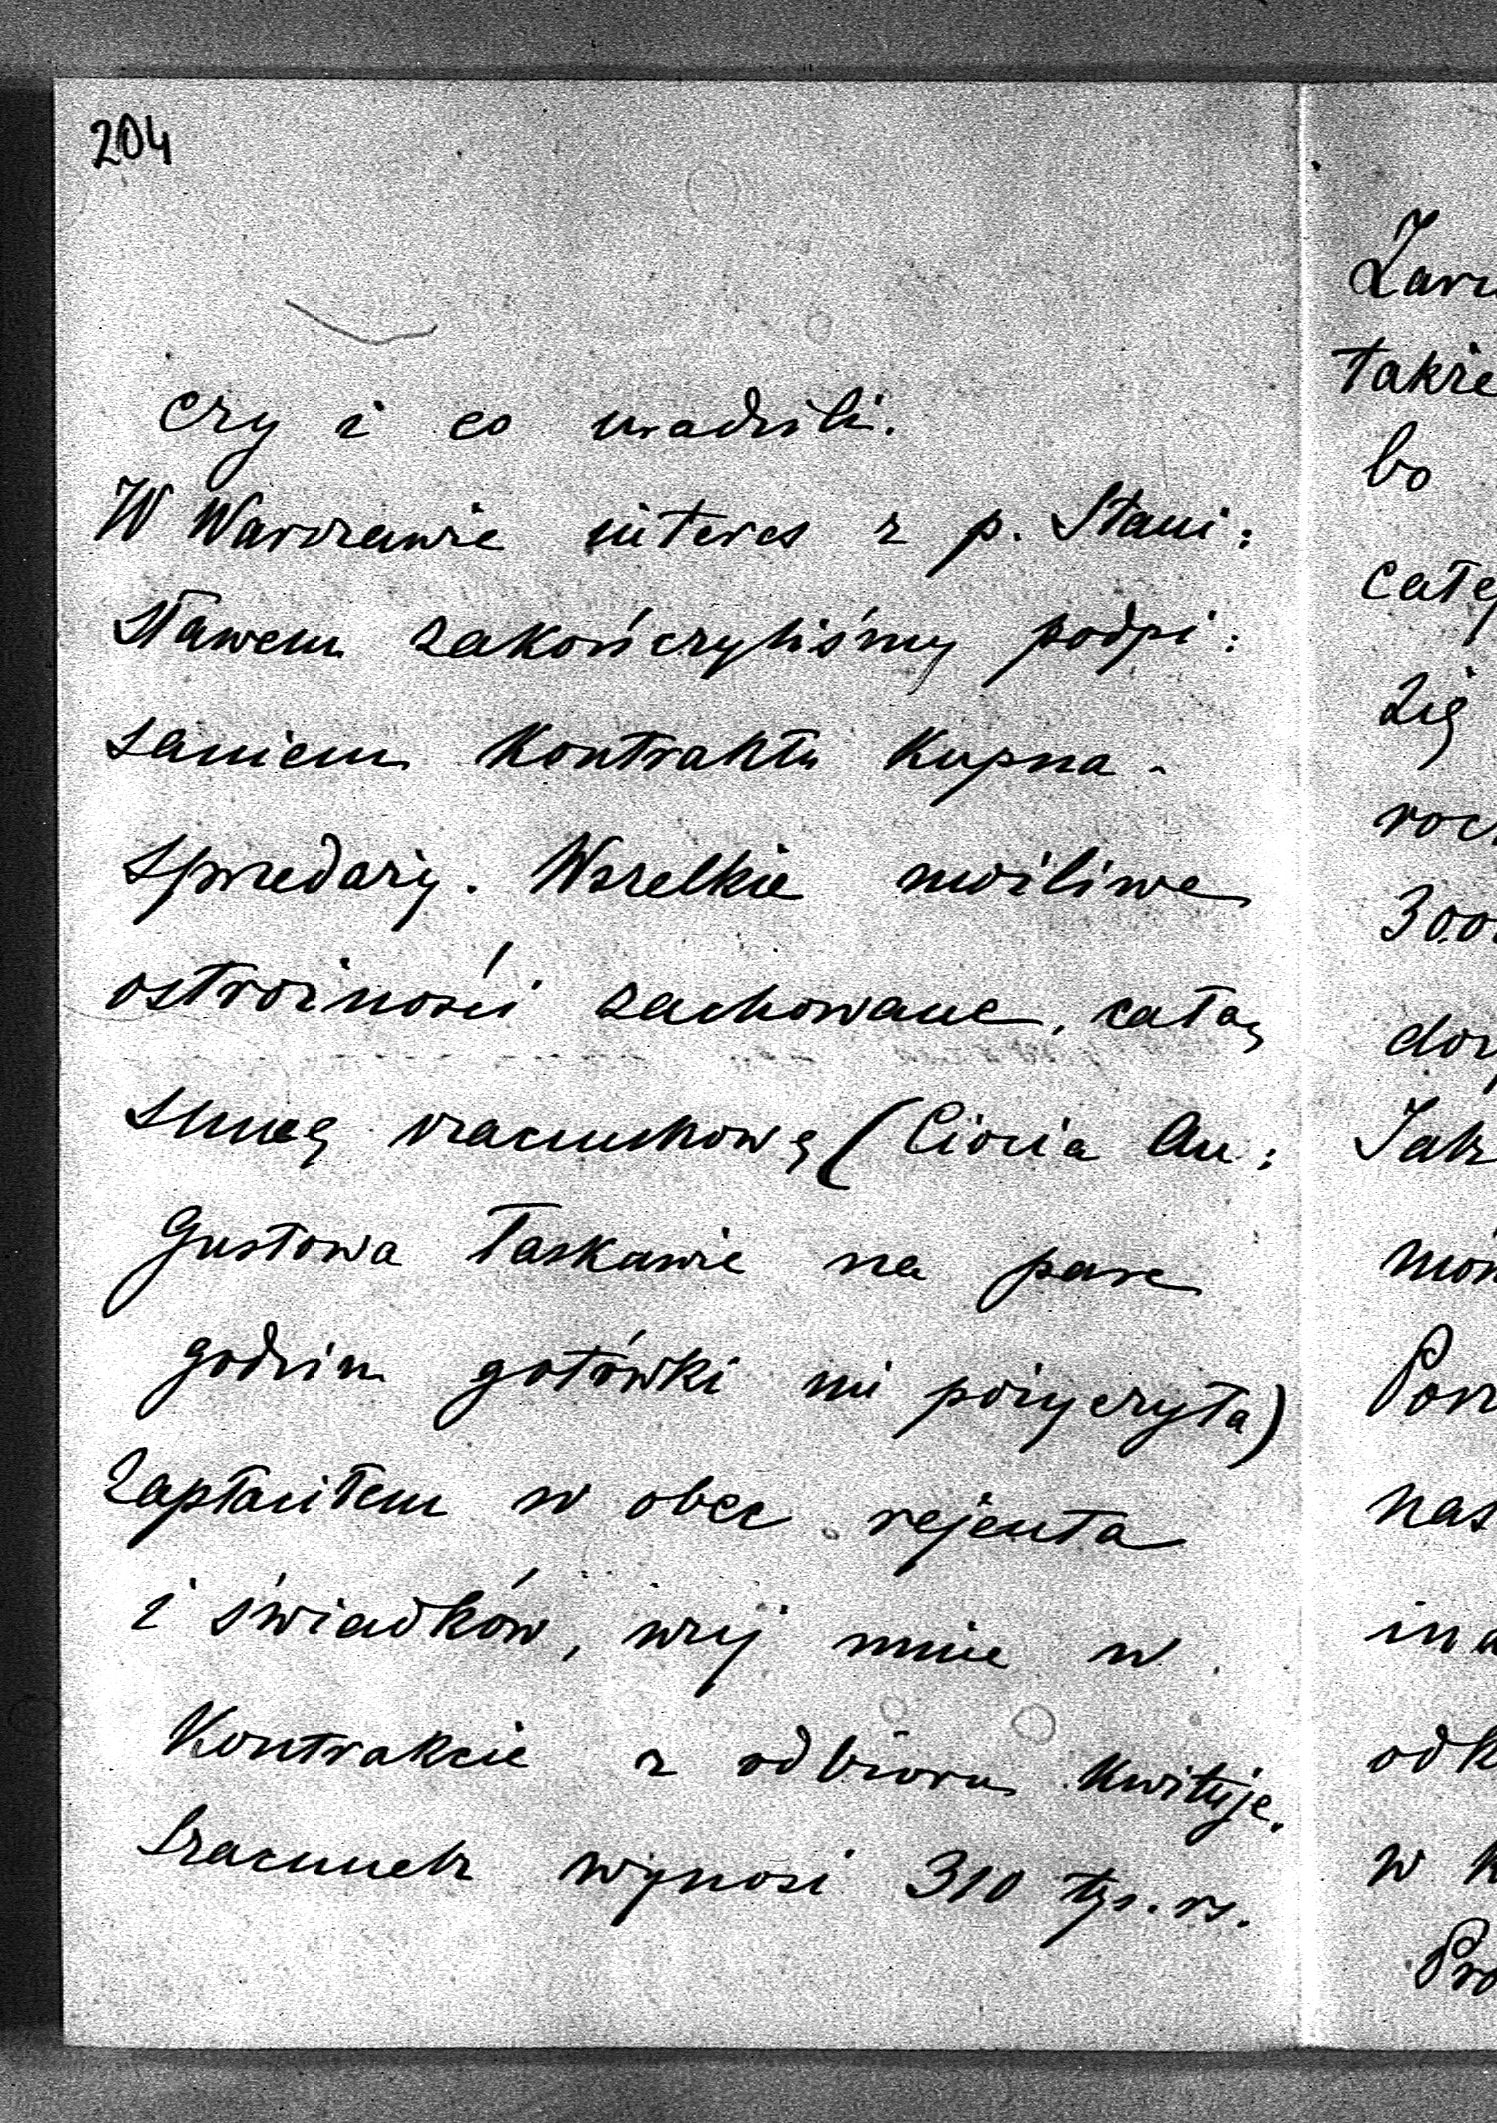 204
czy i co uradzili.
W Warszawie interes z p. Stani:
sławem zakończyliśmy podpi:
saniem Kontraktu Kupna-
sprzedaży. Wszelkie możliwe
ostrożności zachowane, całą
summę szacunkową (Ciocia Au:
gustowa łaskawie na parę
godzin gotówki mi pożyczyła)
zapłaciłem w obec rejenta
i świadków, mnie w
Kontrakcie z odbioru Kwituje.
Szacunek wynosi 310 tys. rs.
także
bo